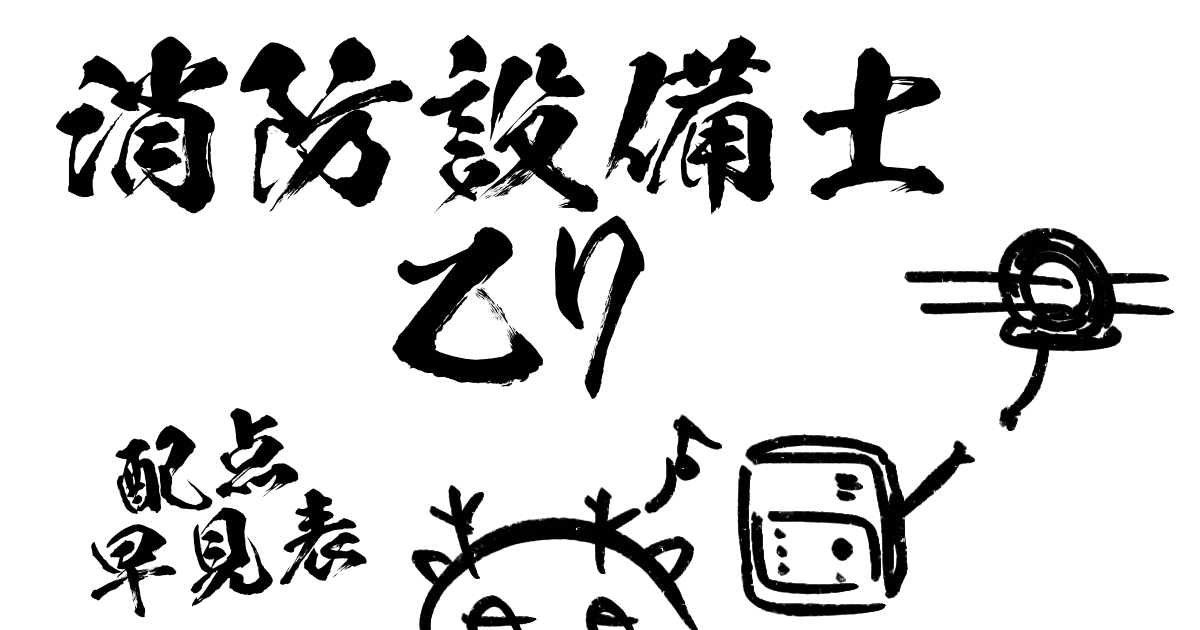 消防設備士
乙7
配点
早見表